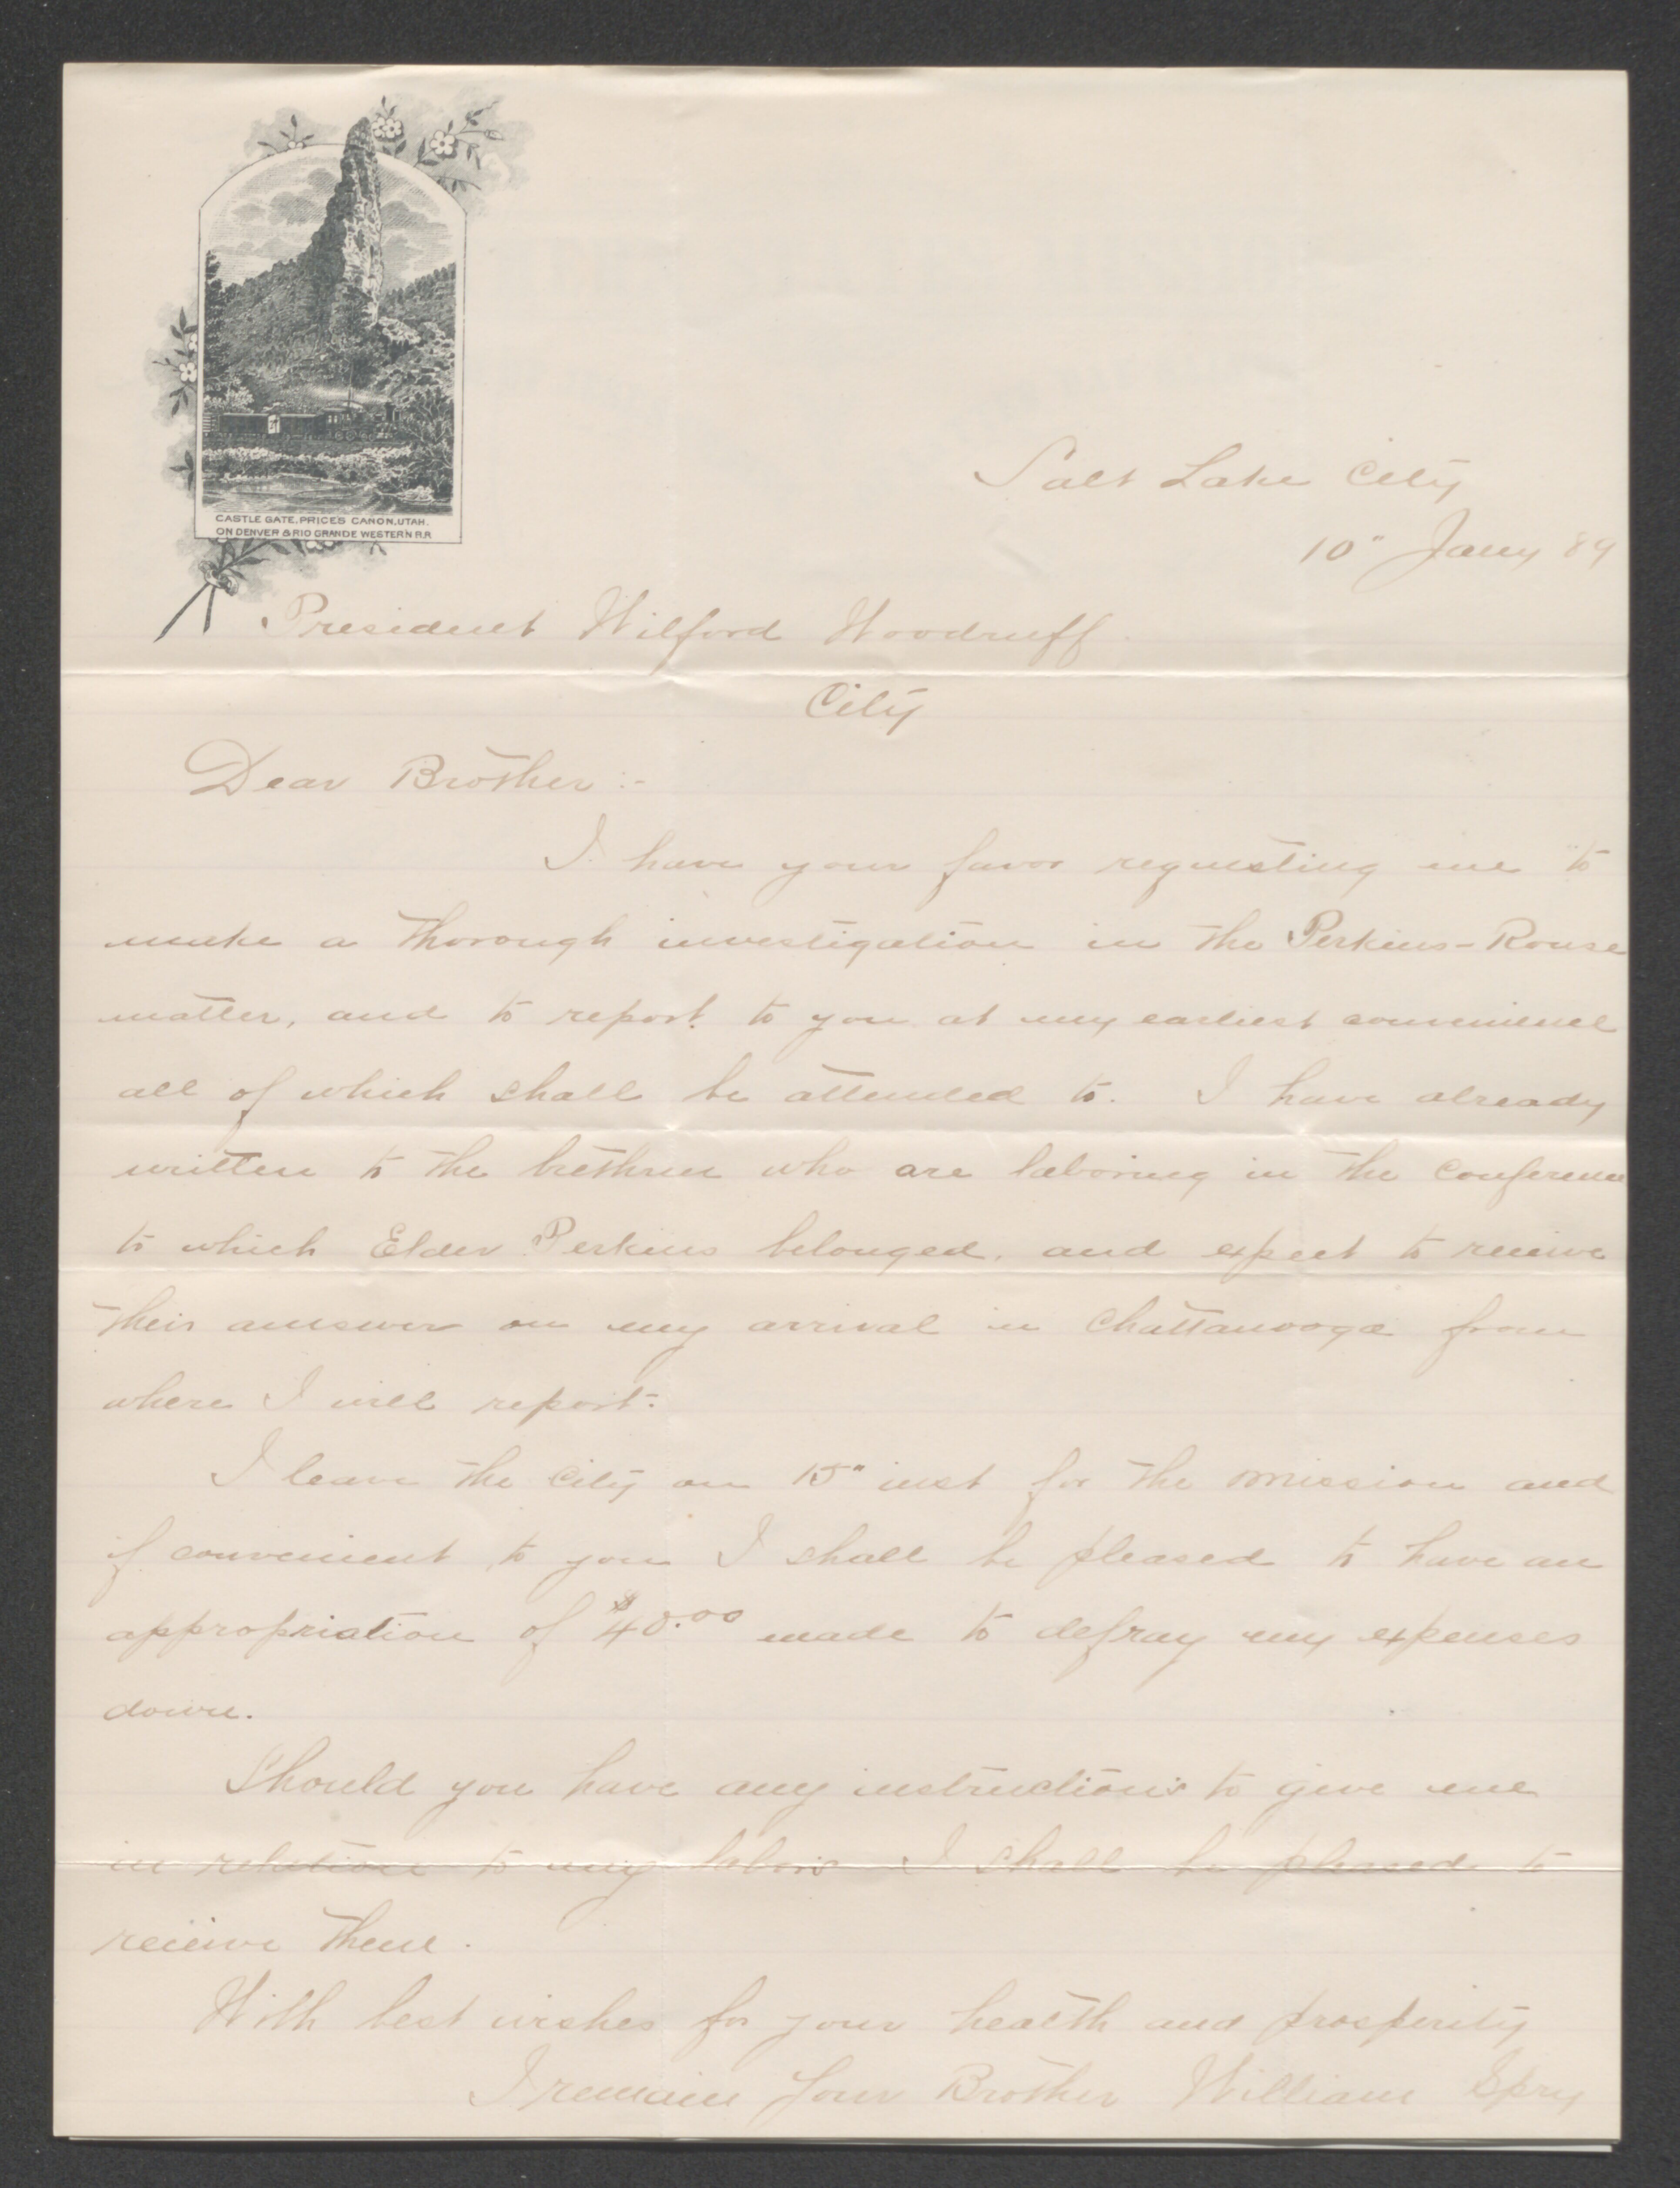 CASTLE GATE, PRICE'S CANON, UTAH.
ON DENVER & RIO GRANDE WESTERN R.R.
Salt Lake City
10" Jany 89
President Wilford Woodruff.
City
Dear Brother:-
I have your favor requesting me to
make a thorough investigation in the Perkins-Rouse
matter, and to report to you at my earliest convenience
all of which shall be attended to. I have already
written to the brethren who are laboring in the Conference
to which Elder Perkins belonged, and expect to receive
their answer on my arrival in Chattanooga from
where I will report.
I leave the City on 15" inst for the mission and
if convenient to you I shall be pleased to have an
appropriation of $40.00 made to defray my expenses
down.
Should you have any instructions to give me
in relation to my labors I shall be pleased to
receive them.
With best wishes for your health and prosperity
I remain Your Brother William Spry